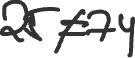 25≠74